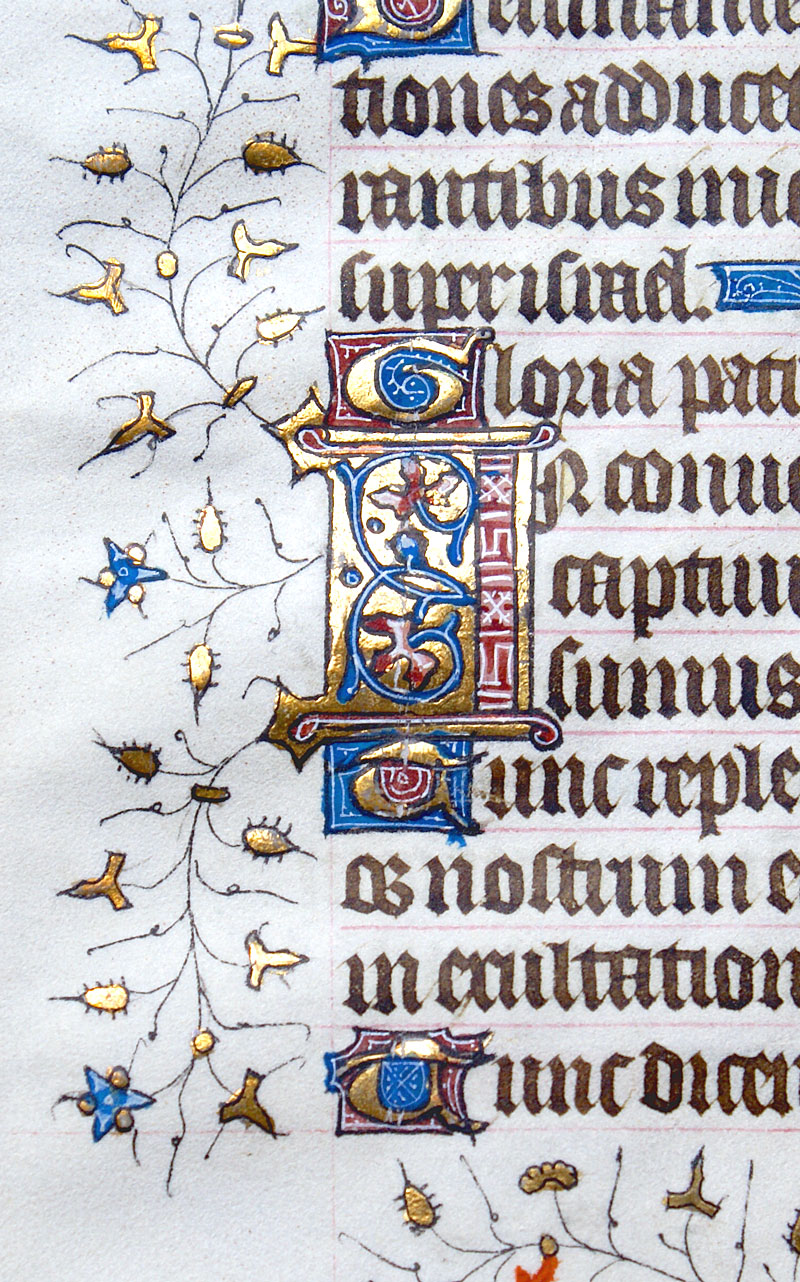 Declinante
tiones adducet
rantibus ini
super israel.
Gloria patri
IN conue
captiui
sumus
Tunc reple
os nostrum
in exultation
Tunc dicen